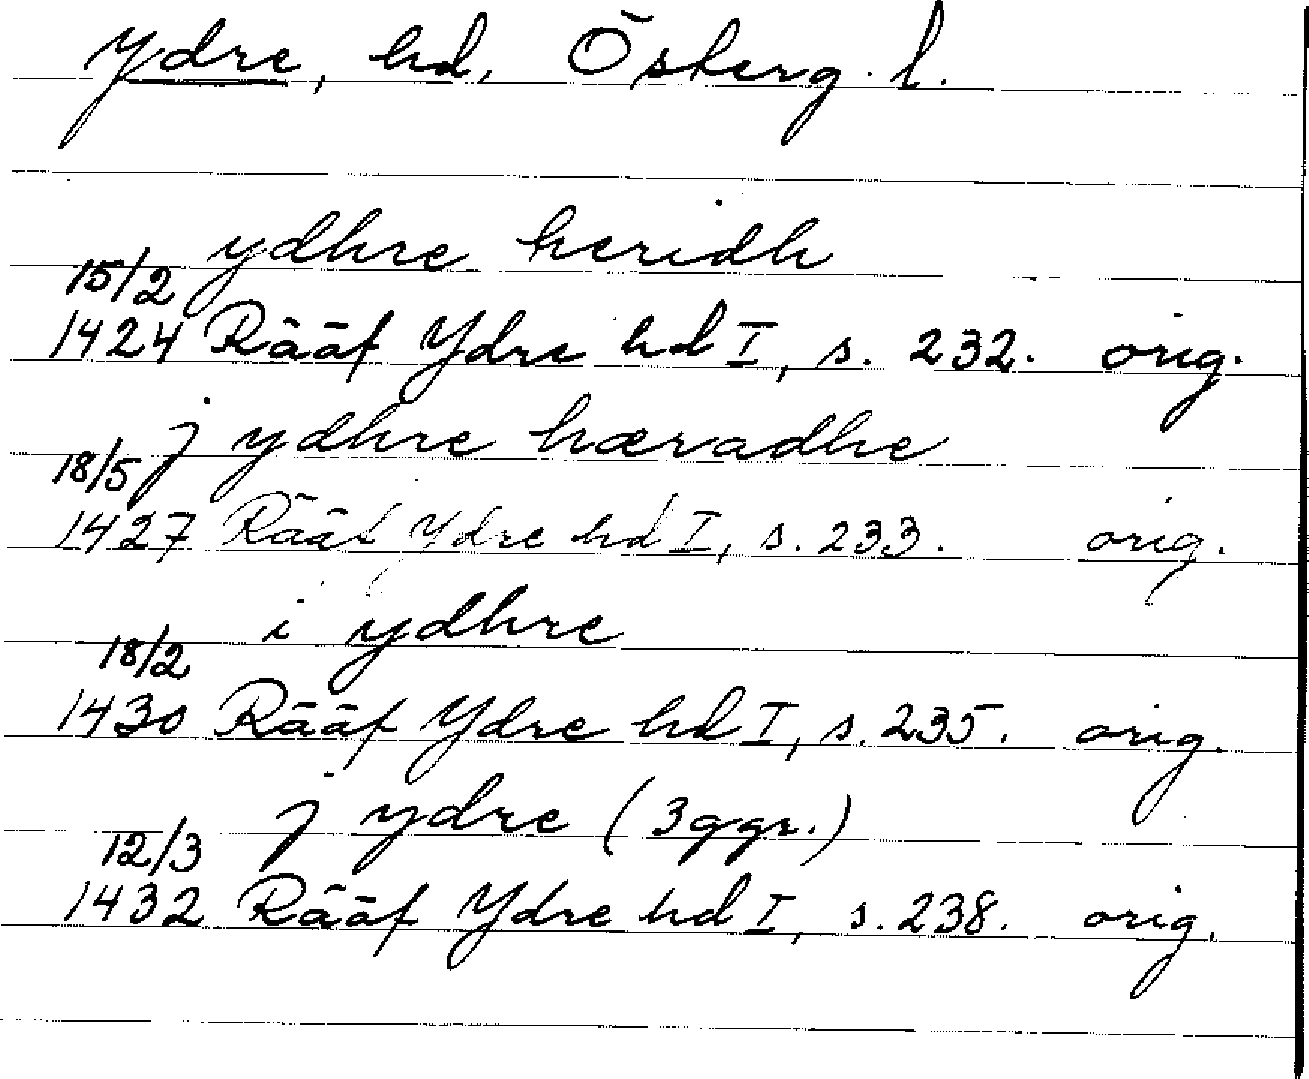 Ydre, hd, Österg. l.
ydhre heridh
15/2
1424 Rääf Ydre hd I, s. 232. orig.
j ydhre hæradhe
18/5
1427 Rääf Ydre hd I, s. 233. orig.
i ydhre
18/2
1430 Rääf Ydre hd I, s. 235. orig.
j ydre (3 ggr.)
12/3
1432 Rääf Ydre hd I, s. 238. orig.